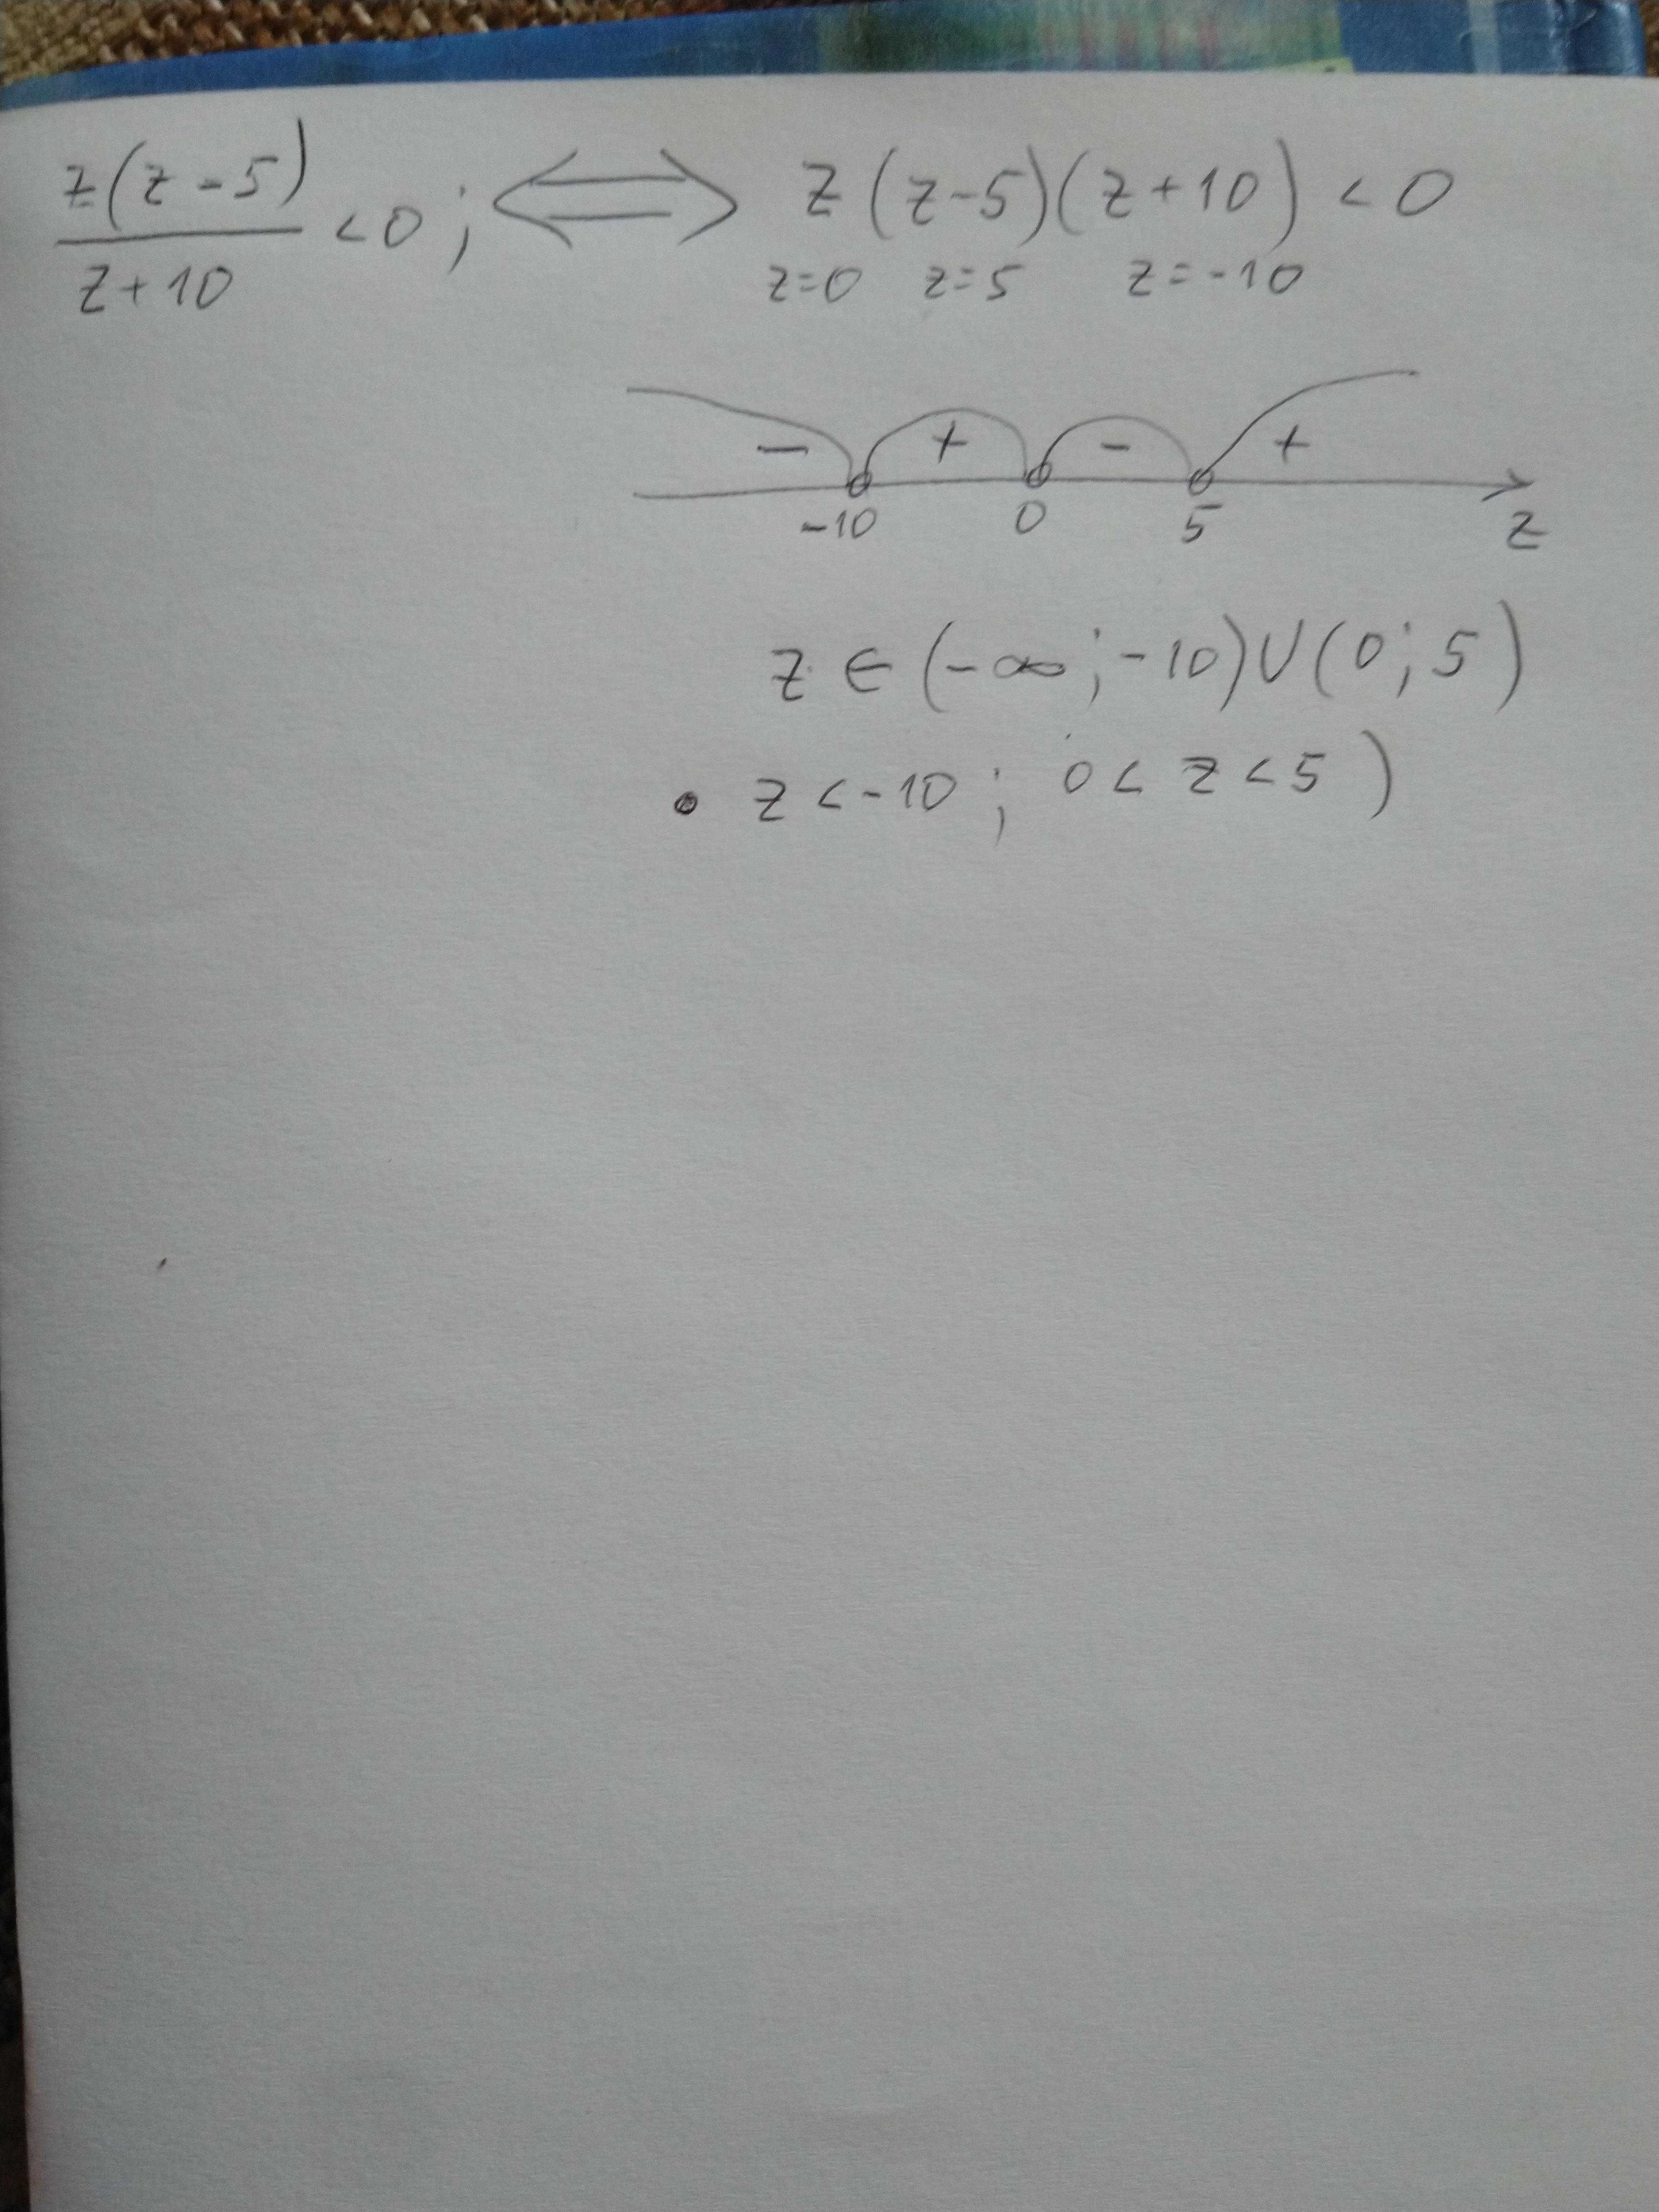 z(z-5)/z+10 <0; ⟺ z(z-5)(z+10)<0
z=0 z=5 z=-10
- + - +
-10 0 5 z
z∈(-∞;-10)∪(0;5)
• z<-10; 0<z<5)